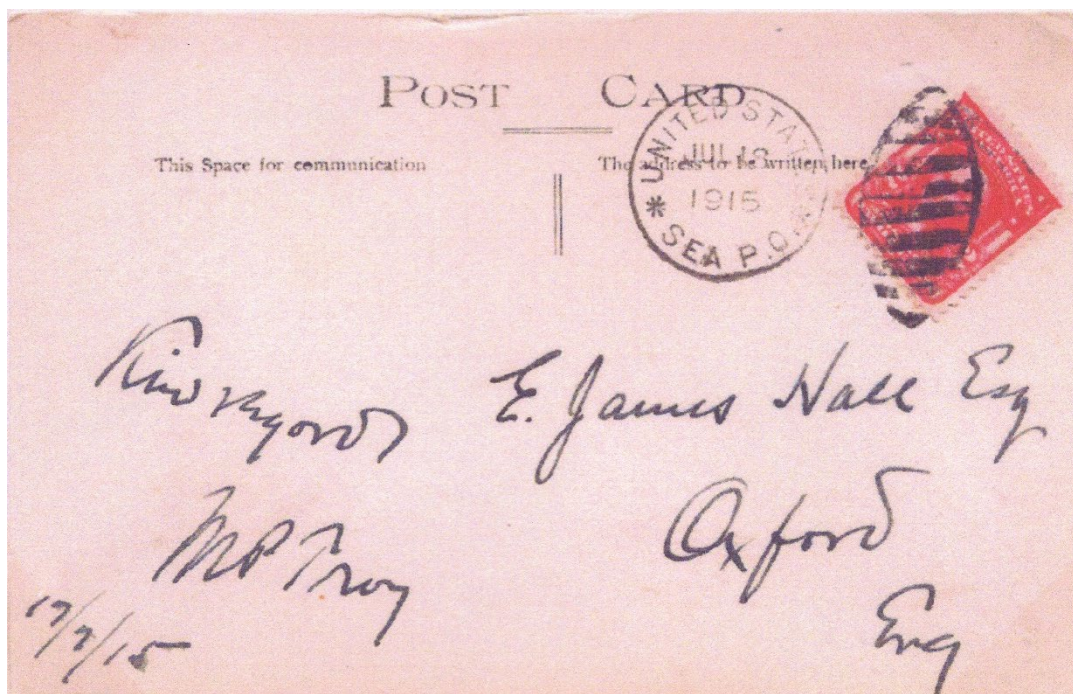 POST CARD
This Space for communication
The address to be written here
* UNITED STATES
JUL
1915
* SEA P.O.
Kind regards
M P Troy
17/7/15
E. James Hall Esq
Oxford
Eng